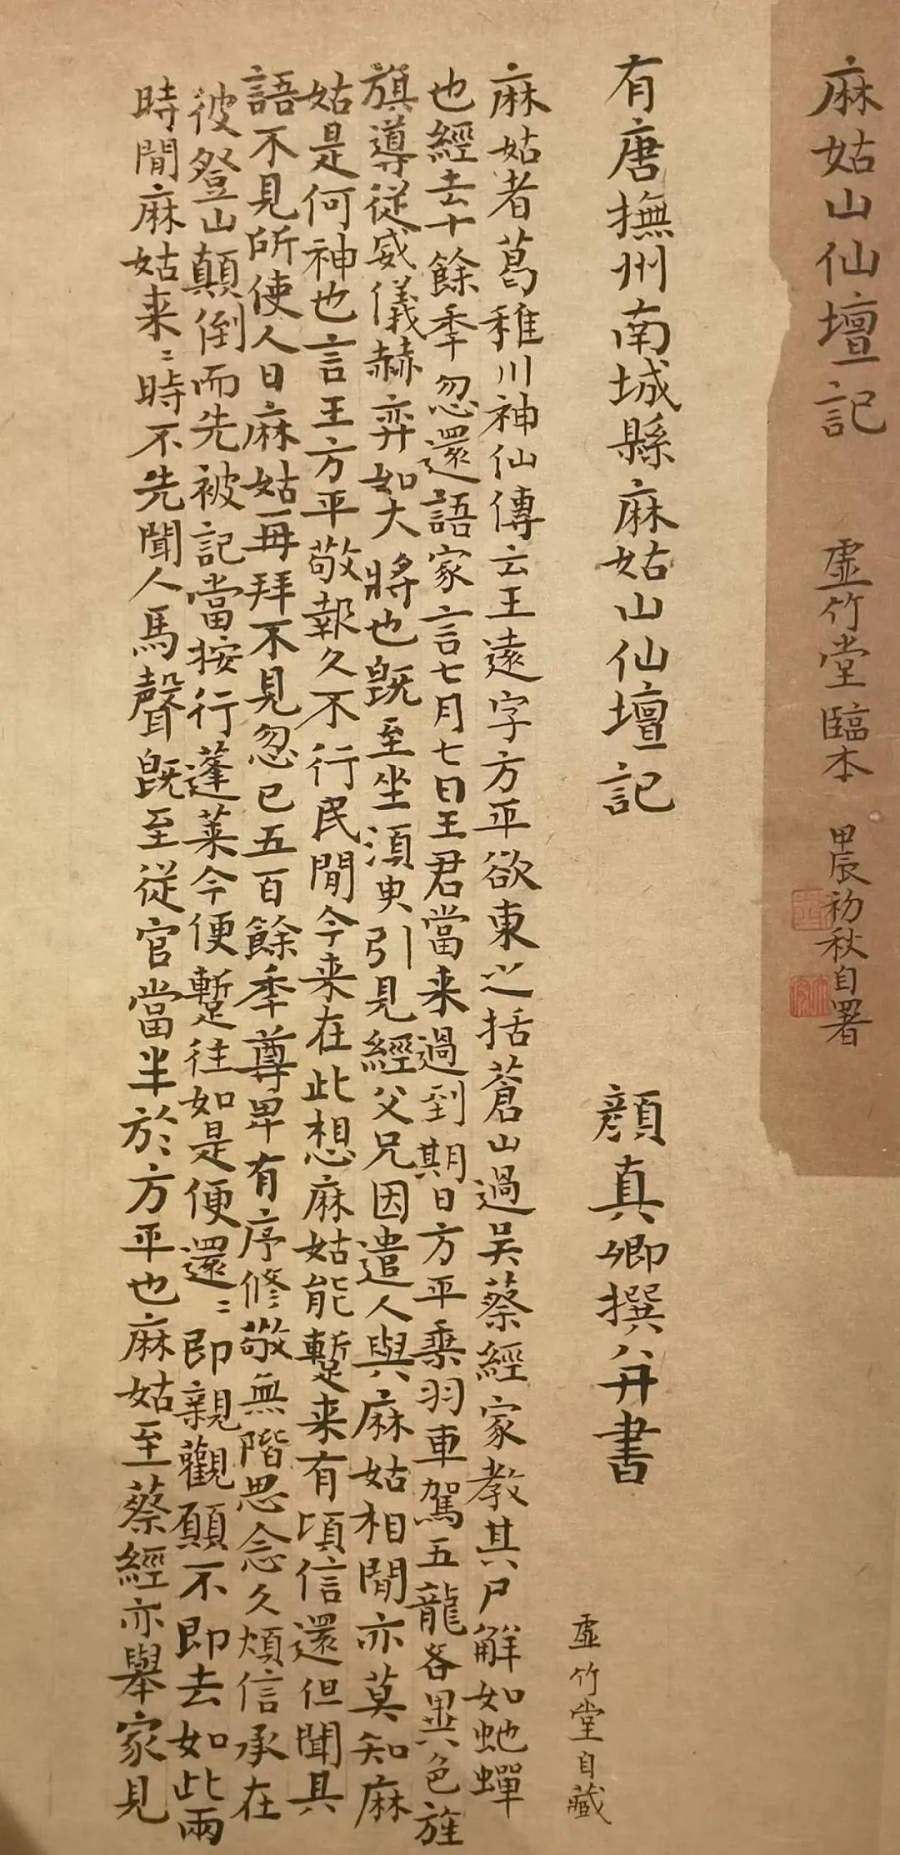 麻姑山仙壇記 虛竹堂臨本 甲辰初秋自署
有唐撫州南城縣麻姑山仙壇記 顏真卿撰并書
虛竹堂自藏
麻姑者葛稚川神仙傳云王遠字方平欲東之括蒼山過吳蔡經家教其尸解如虵蟬
也經去十餘年忽還語家言七月七日王君當来過到期日方平乗羽車駕五龍各異色旌
旗導従威儀赫弈如大將也旣至坐須臾引見經父兄因遣人與麻姑相聞亦莫知麻
姑是何神也言王方平敬報久不行民間今来在此想麻姑能蹔来有頃信還但聞其
語不見所使人曰麻姑再拜不見忽已五百餘年尊卑有序修敬無階思念久煩信承在
彼登山顛倒而先被記當按行蓬萊今便蹔往如是便還〻即親觀願不即去如此兩
時間麻姑来〻時不先聞人馬聲旣至從官當半於方平也麻姑至蔡經亦舉家見